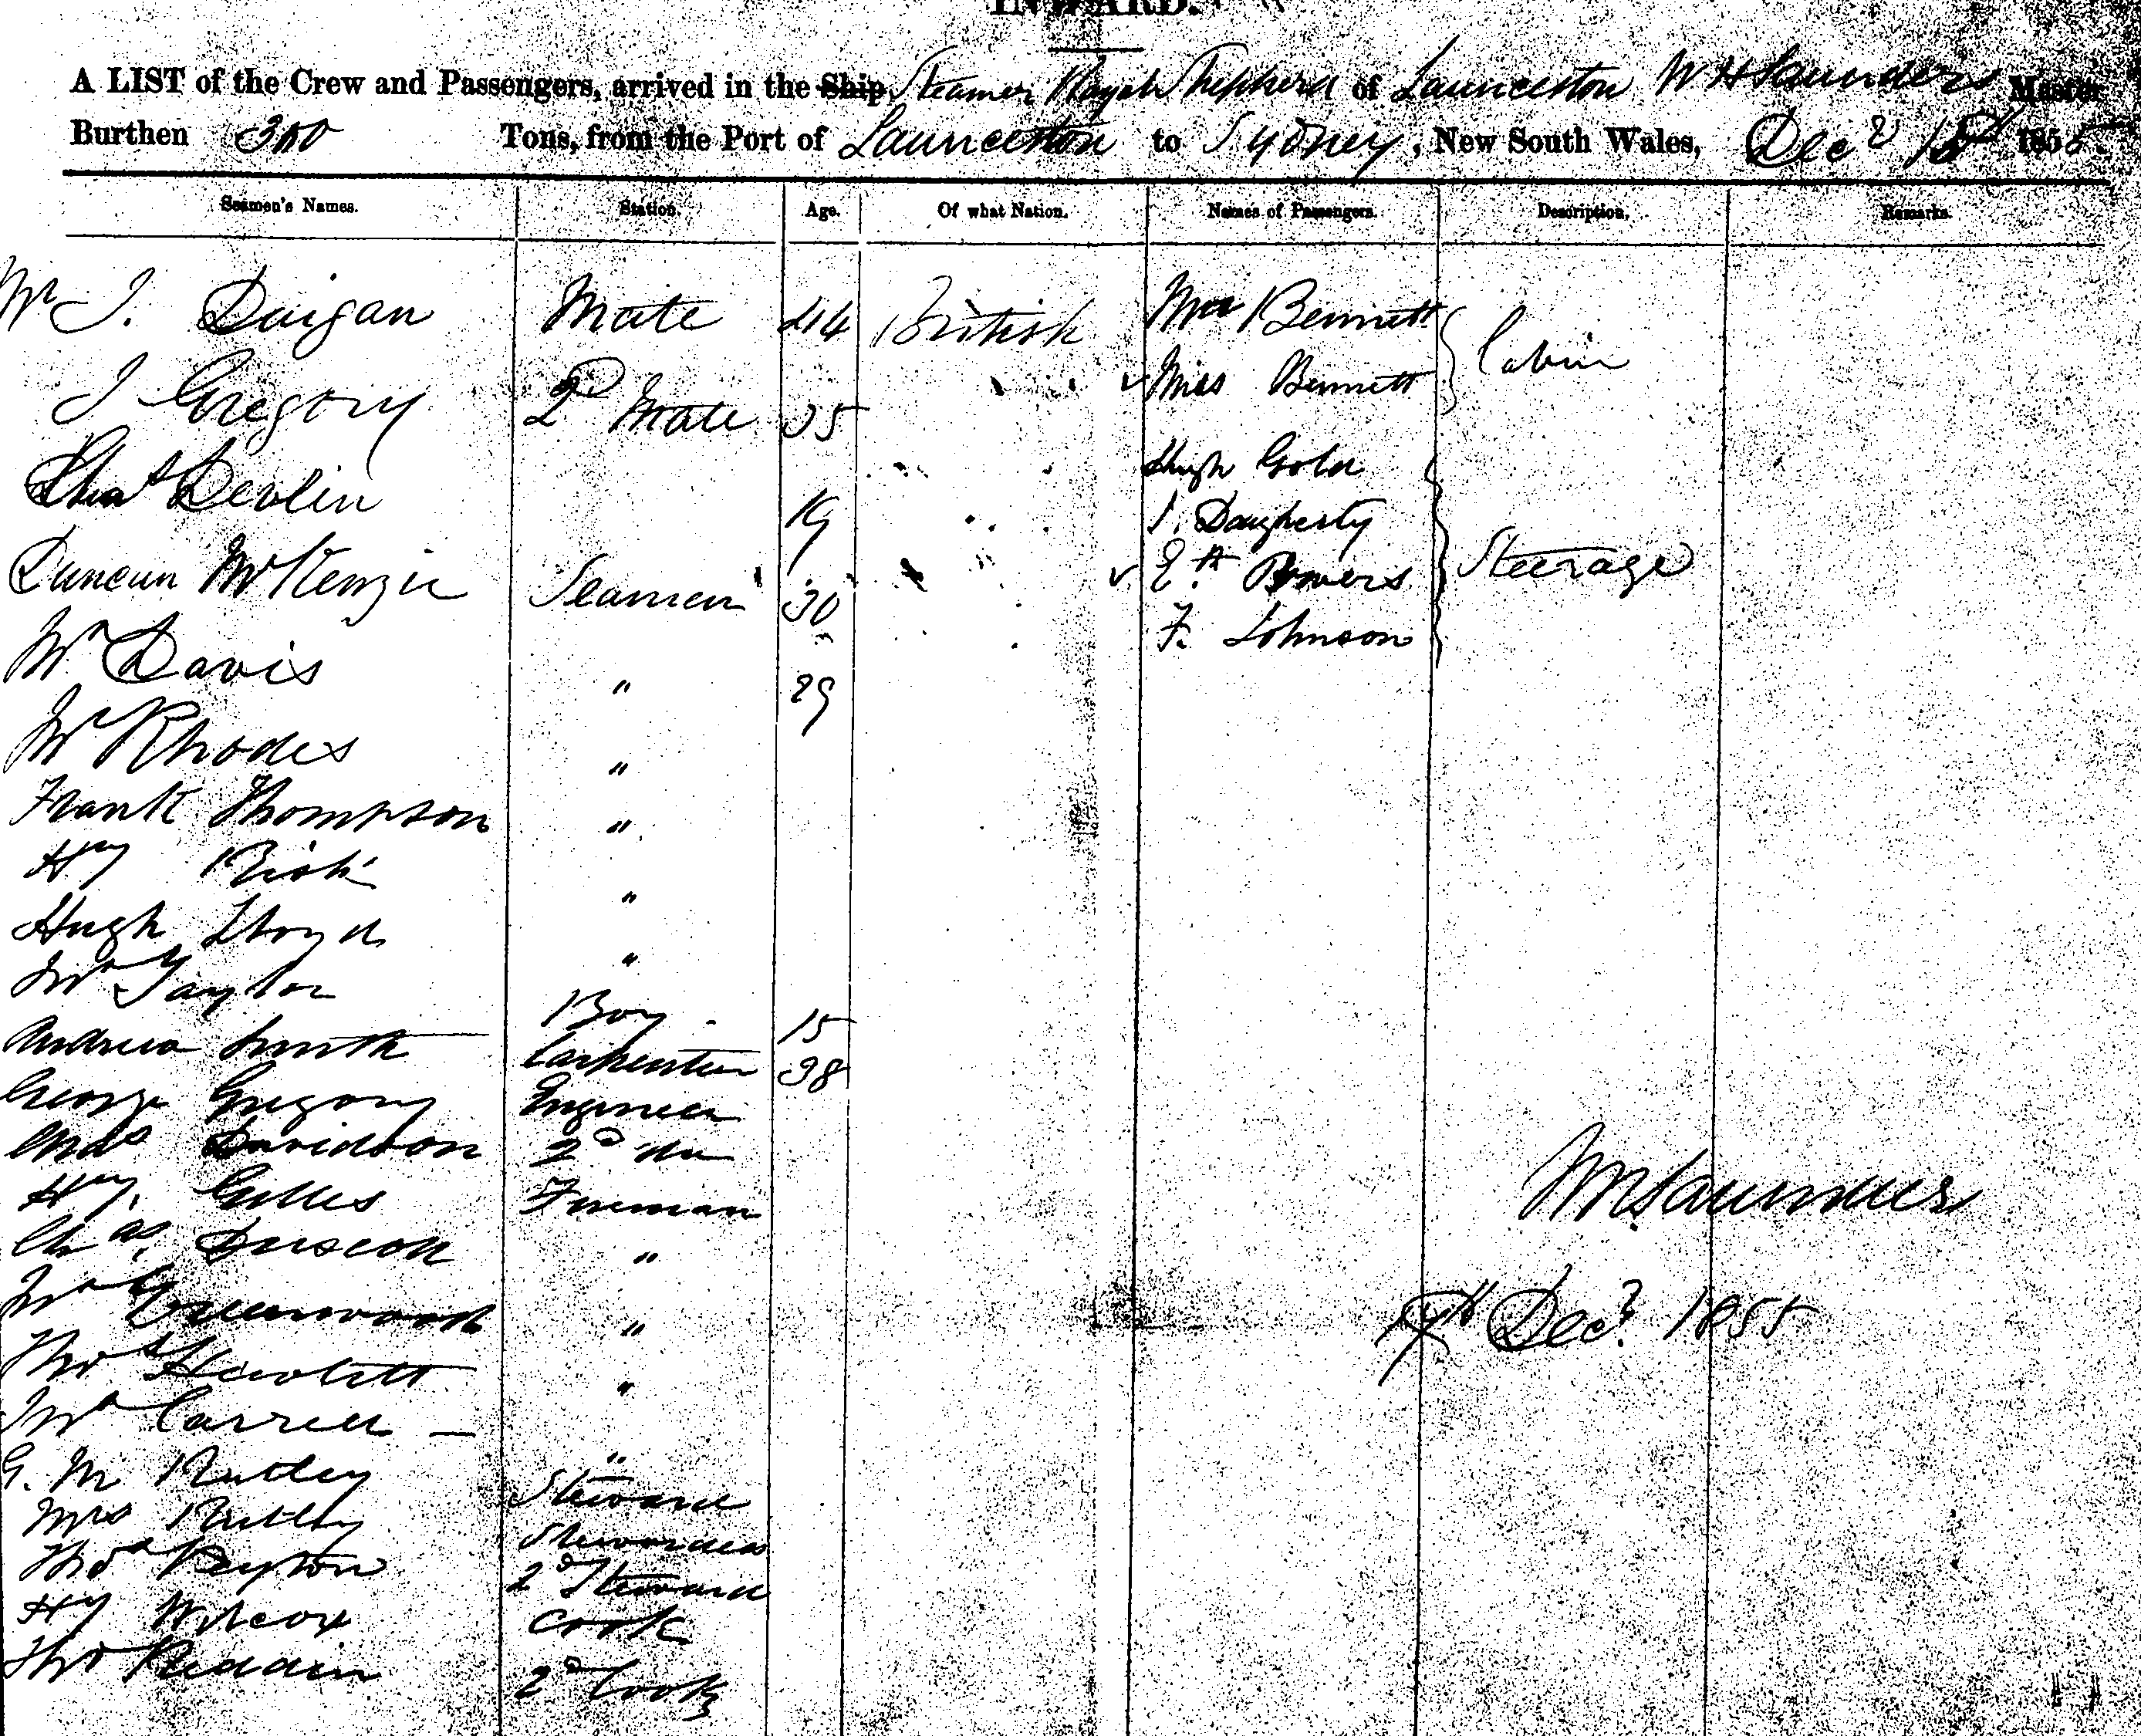 INWARD.
A LIST of the Crew and Passengers, arrived in the Ship Steamer Royal Shepherd of Launceston W H Saunders Master
Burthen 300 Tons, from the Port of Launceston to Sydney, New South Wales, Decr 1855.
Seamen's Names. Station. Age. Of what Nation. Names of Passengers. Description. Remarks.
Mr J. Duigan Mate 44 British Mrs Bennett Cabin
J Gregory 2d Mate 35 Miss Bennett
Chas Devlin 19 Hugh Gold
J. Daugherty
Duncan McKenzie Seamen 30 Eth Bowers Steerage
F. Johnson
Wm Davis " 29
Rhodes "
Frank Thompson "
Hy "
Hugh Lloyd "
Jno Taylor Boy 15
Andrew Smith Carpenter 38
George Gregory Engineer
Davidson 2d do
Hy. Gilles Fireman
Chas. Driscoll "
Jno Greenwood "
Thos Hewlett "
Jno Carrell — "
G. M Rutley Steward
Mrs Rutley Stewardess
Thos Peyton 2d Steward
Hy Wilcox Cook
Thos 2d Cook
WH Saunders
Decr 1855